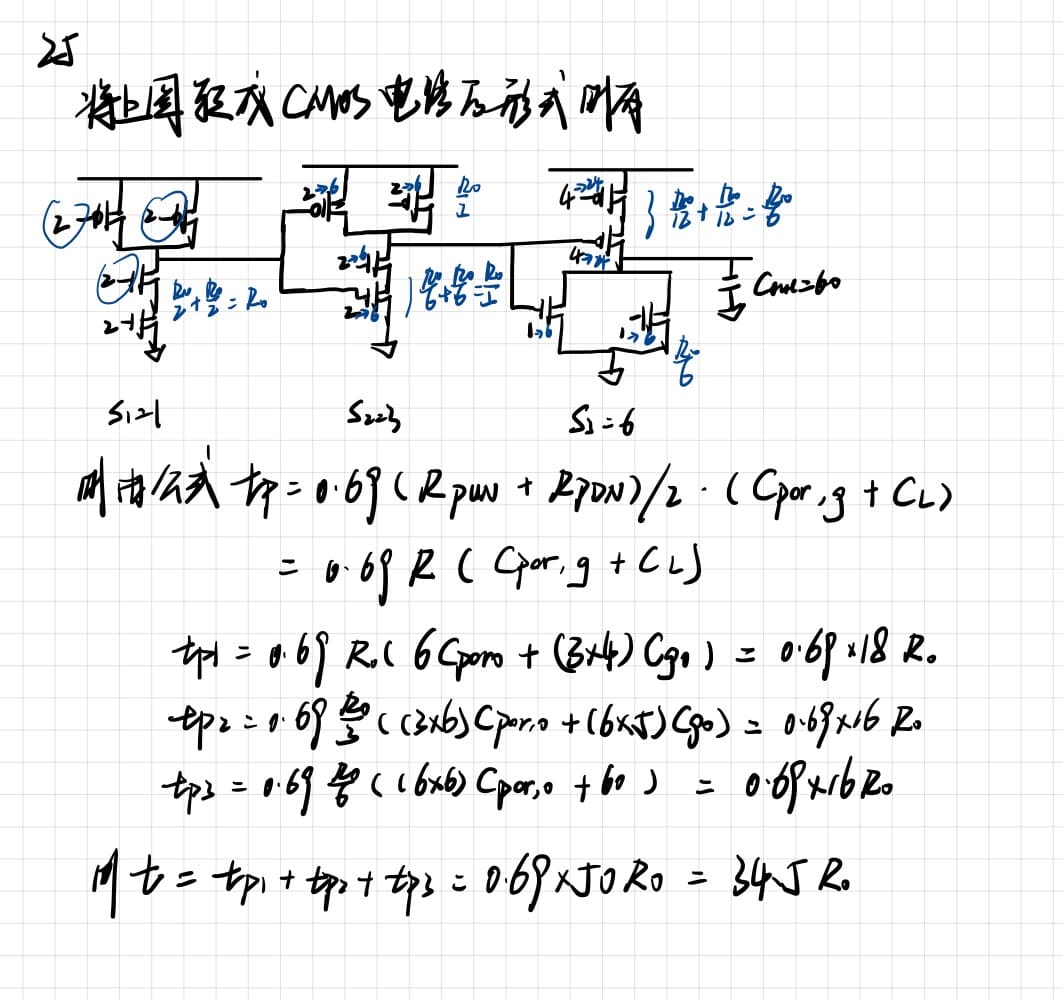 25
将上图转成CMOS电路后形式 则有
2→6 2→6 R₀/3 4→24
2 2 } R₀/12 + R₀/12 = R₀/6
2 2→6 4→24
2 R₀/2 + R₀/2 = R₀ 2→6 ) R₀/6 + R₀/6 = R₀/3 1→6 1→6 R₀/6 = 60
S₁=1 S₂=3 S₃=6
则由公式 tp = 0.69 (RPUN + RPDN)/2 · (Cpar,g + CL)
= 0.69 R ( Cpar,g + CL)
tp1 = 0.69 R₀( 6Cpar0 + (3×4) Cg₀ ) = 0.69 × 18 R₀
tp2 = 0.69 R₀/3 ((3×6) Cpar,0 + (6×5) Cg0) = 0.69×16 R₀
tp3 = 0.69 R₀/6 ( (6×6) Cpar,0 + 60 ) = 0.69×16 R₀
则 t = tp1 + tp2 + tp3 = 0.69 × 50 R₀ = 34.5 R₀